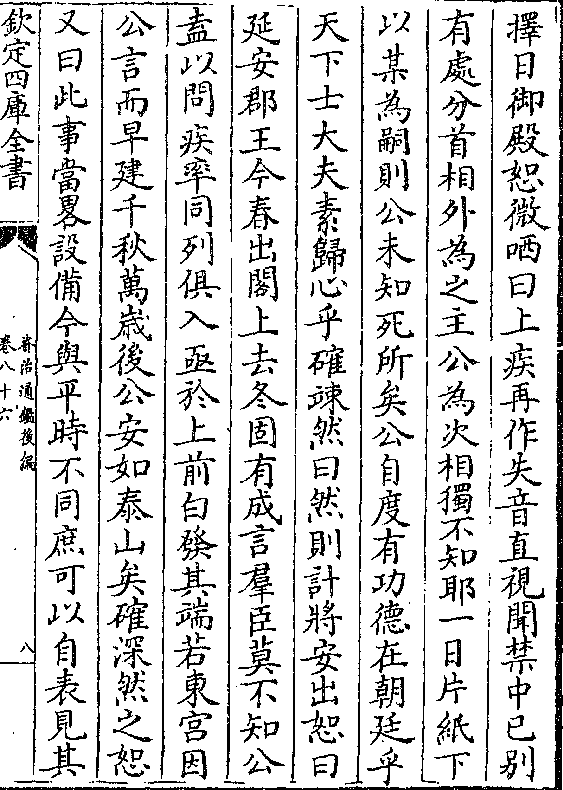 擇日御殿恕微哂曰上疾再作失音直視聞禁中已别
有處分首相外為之主公為次相獨不知耶一日片紙下
以某為嗣則公未知死所矣公自度有功德在朝廷乎
天下士大夫素歸心乎確竦然曰然則計將安出恕曰
延安郡王今春出閣上去冬固有成言羣臣莫不知公
盍以問疾率同列俱入亟於上前白發其端若東宮因
公言而早建千秋萬嵗後公安如泰山矣確深然之恕
又曰此事當畧設備今與平時不同庶可以自表見其
欽定四庫全書
資治通鑑後編
卷八十六
八